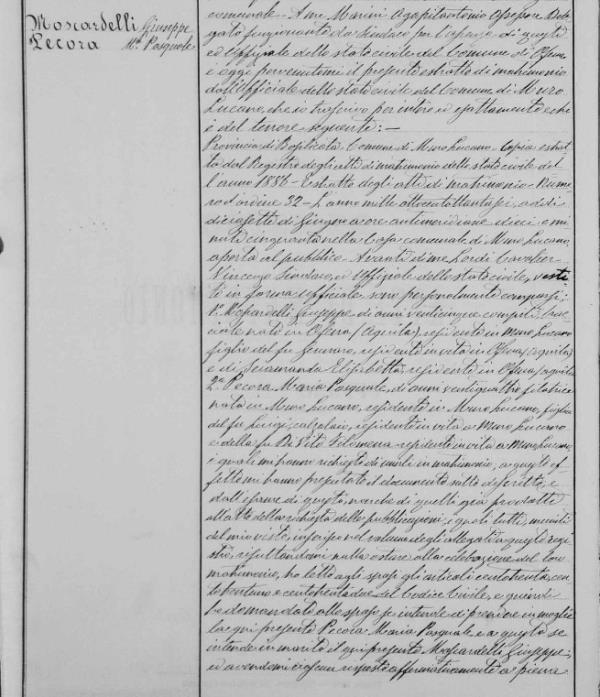 Moscardelli Giuseppe
Pecora Ma Pasquale
comunale - A me Marini Agapitantonio Assessore Dele
gato funzionante da Sindaco per l'assenza di questo
ed Uffiziale dello stato civile del Comune di Ofena
è oggi pervenutomi il presente estratto di matrimonio
dall'Uffiziale dello stato civile del Comune di Muro
Lucano, che io trascrivo per intero e esattamente e ch
è del tenore seguente: -
Provincia di Basilicata Comune di Muro Lucano - Copia estrat
ta dal Registro degli atti di matrimonio dello stato civile del
l'anno 1886 - Estratto degli atti di matrimonio - Nume
ro d'ordine 32 - L'anno mille ottocentottantasei, addì
diciassette di Giugno a ore antimeridiane dieci e mi
nuti cinquanta nella Casa comunale di Muro Lucano
aperta al pubblico. Avanti di me Lordi Cavalier
Vincenzo Sindaco, ed Uffiziale dello stato civile, vesti
to in forma ufficiale sono personalmente comparsi;
1° Moscardelli Giuseppe di anni venticinque compiti,
nato in Ofena (Aquila), residente in Muro Lucano
figlio del fu Gennaro, residente in vita in Ofena (Aquila)
e di Elisabetta, residente in Ofena (Aquila)
2° Pecora Maria Pasquale, di anni ventiquattro filatrice
nata in Muro Lucano, residente in Muro Lucano, figlia
del fu Luigi, calzolaio, residente in vita a Muro Lucano
e della fu Di Vito Filomena residente in vita a Muro Lucano,
i quali mi hanno richiesto di unirli in matrimonio; a questo ef
fetto mi hanno presentato il documento sotto descritto, e
dall'esame di questo, nonché di quelli già prodotti
all'atto della richiesta delle pubblicazioni, i quali tutti, muniti
del mio visto, inserisco nel volume degli allegati a questo regi
stro, risultandomi nulla ostare alla celebrazione del loro
matrimonio, ho letto agli sposi gli articoli centotrenta, cen
totrentuno e centotrentadue del Codice Civile, e quindi
ho domandato allo sposo se intende di prendere in moglie
la qui presente Pecora Maria Pasquale e a questa se
intende in marito il qui presente Moscardelli Giuseppe,
ed avendomi ciascun risposto affermativamente a piena